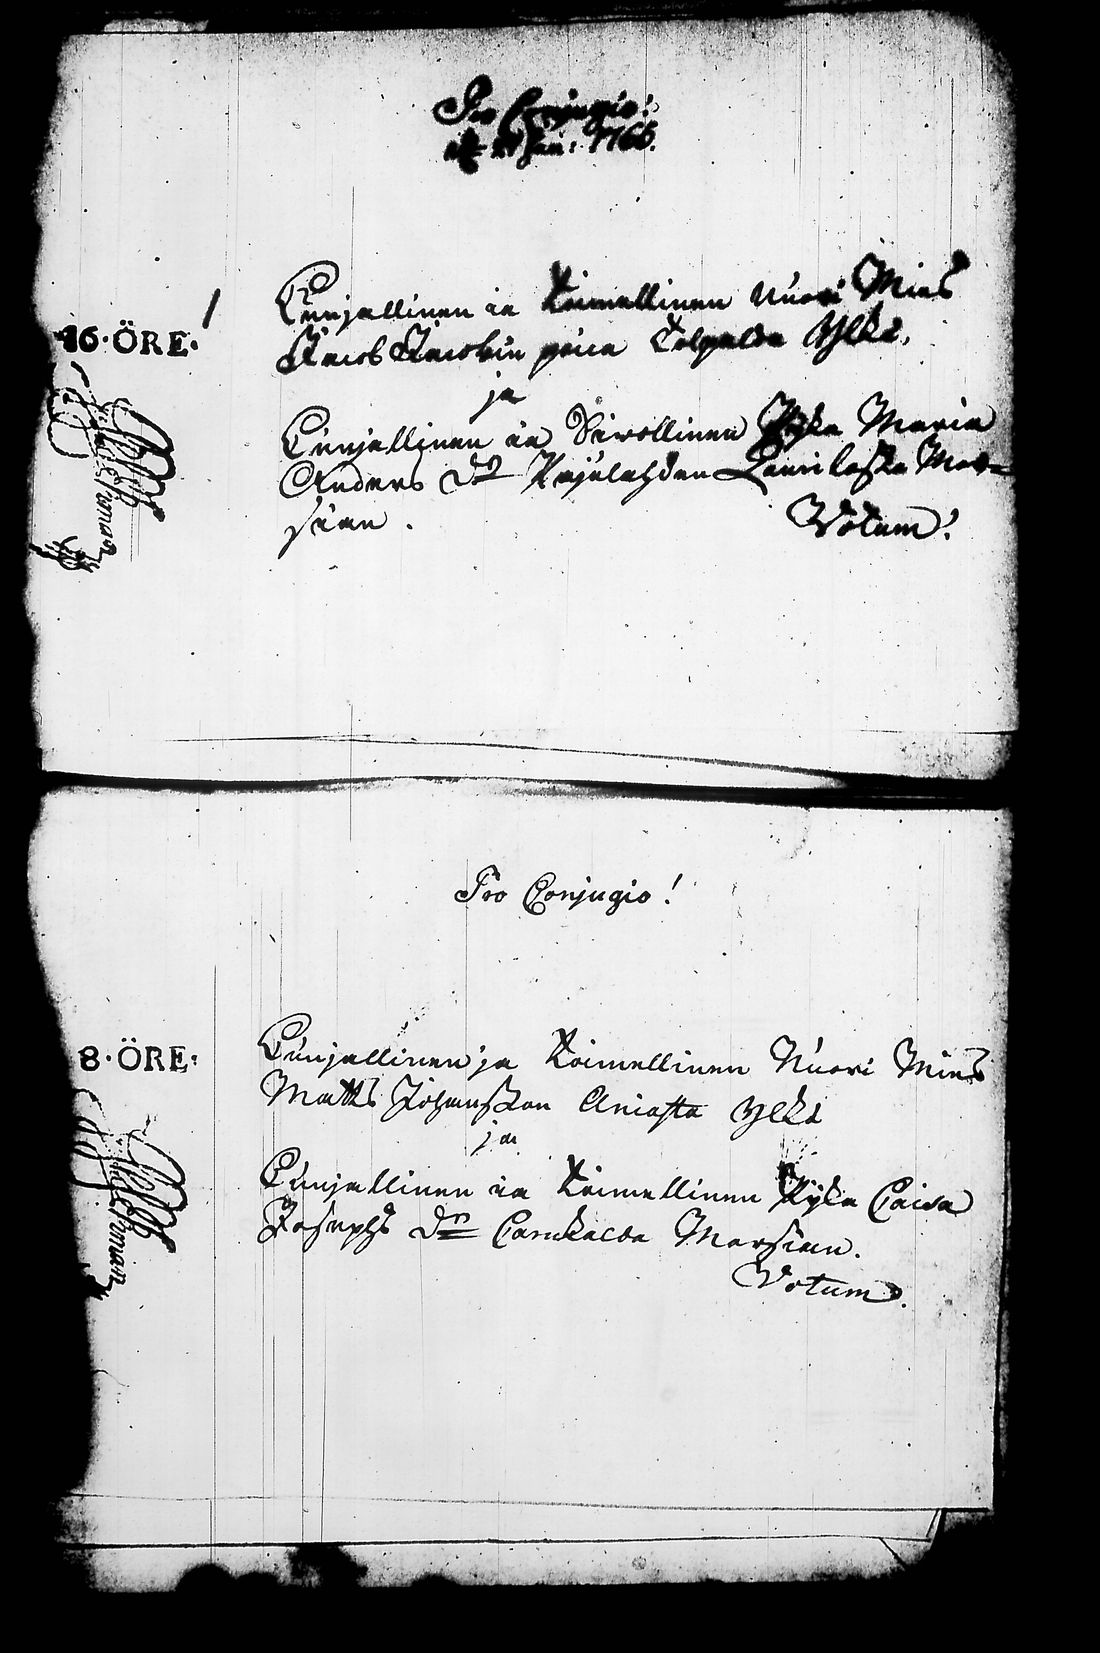 Pro Conjugio!
Jan: 1765.
16·ÖRE·
Cunjallinen ja Toimellinen Nuori Mies
Jacob Jacobin poica Tolpalda Yltä,
ja
Cunjallinen ja Siwollinen Pijka Maria
Anders Dr Kajulahden Laurilasta Mor=
sian.
Votum!
Pro Conjugio!
8·ÖRE·
Cunjallinen ja Toimellinen Nuori Mies
Matts Johansson Aniasta Yltä
ja
Cunjallinen ja Toimellinen Pijka Caisa
Josephs Dr Morsian.
Votum.